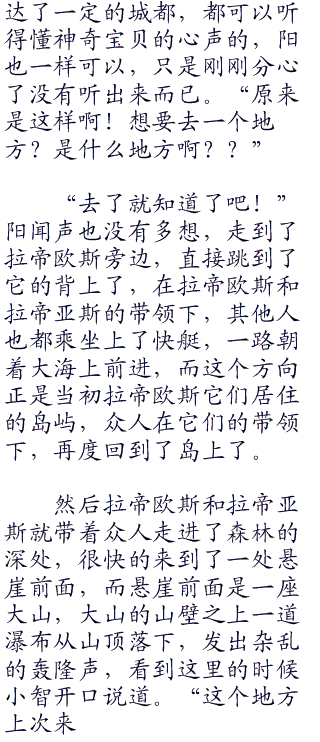 达了一定的城都，都可以听
得懂神奇宝贝的心声的，阳
也一样可以，只是刚刚分心
了没有听出来而已。“原来
是这样啊！想要去一个地
方？是什么地方啊？？”
“去了就知道了吧！”
阳闻声也没有多想，走到了
拉帝欧斯旁边，直接跳到了
它的背上了，在拉帝欧斯和
拉帝亚斯的带领下，其他人
也都乘坐上了快艇，一路朝
着大海上前进，而这个方向
正是当初拉帝欧斯它们居住
的岛屿，众人在它们的带领
下，再度回到了岛上了。
然后拉帝欧斯和拉帝亚
斯就带着众人走进了森林的
深处，很快的来到了一处悬
崖前面，而悬崖前面是一座
大山，大山的山壁之上一道
瀑布从山顶落下，发出杂乱
的轰隆声，看到这里的时候
小智开口说道。“这个地方
上次来